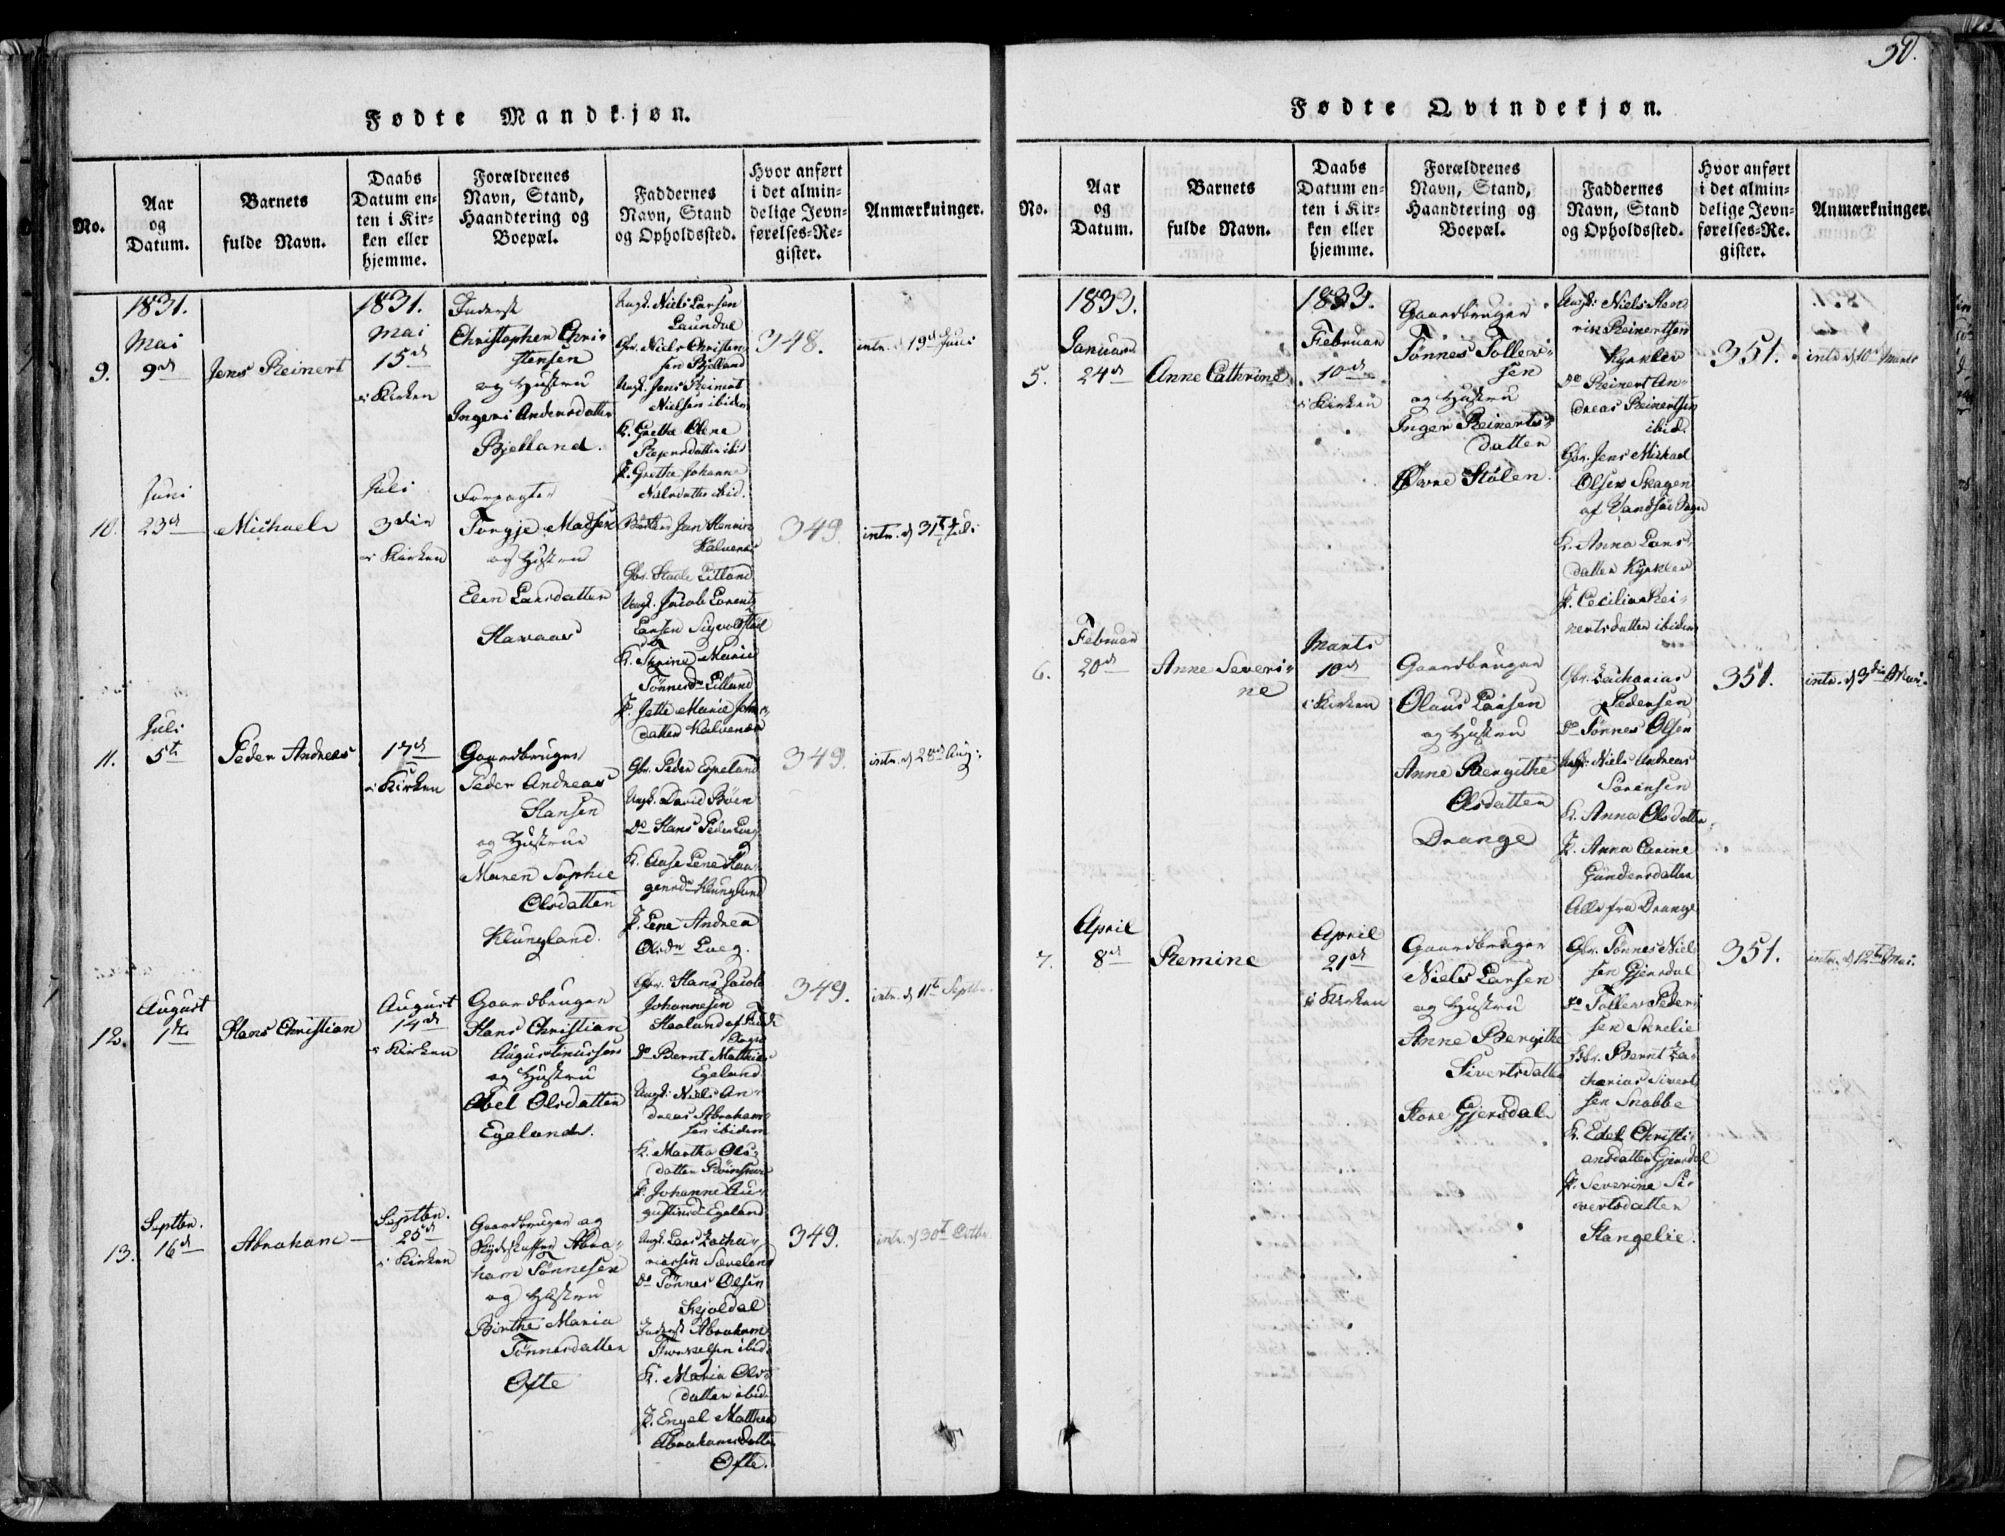 50.
Fødte Mandkjøn.
No.
Aar
og
Datum.
Barnets
fulde Navn.
Daabs
Datum en-
ten i Kir-
ken eller
hjemme.
Forældrenes
Navn, Stand,
Haandtering og
Boepæl.
Faddernes
Navn, Stand
og Opholdssted.
Hvor anført
i det almin-
delige Jevn-
førelses-Re-
gister.
Anmærkninger.
9.
1831.
Mai
9de
Jens Reinert
1831.
Mai
15de
i Kirken
Inderst
Christopher Chri-
stensen
og Hustru
Inger Andersdatter
Bjelland.
Ungk. Niels Larsen
Gbr. Niels Christen-
sen Bjelland
Ungk. Jens Reinert
Nielsen ibidem
K. Grethe Olene
P. Grethe Johanne
Nielsdatter ibid.
348.
intr. d 19de Juni
10.
Juni
23de
Michael
Juli
3die
i Kirken
Forpagter
Torgje Madsen
og Hustru
Elen Larsdatter
Havaas
Jan Henrik
Kalvenes
Gbr. Stadle Lilland
Ungk. Jacob Lorents
Larsen Sigvoldstad
K. Trine Marie
Tønnesdr Lilland
P. Jette Marie
datter Kalvenes
349.
intr. d 31te Juli
11.
Juli
5te
Peder Andreas
17de
i Kirken
Gaardbruger
Peder Andreas
Hansen
og Hustrue
Maren Sophie
Olsdatter
Klungland.
Gbr. Peder Egeland
Ungk. David Böen
Do Hans Peder Lueg
K. Aase Lene Haa-
gensdr Klungland
P. Lene Andrea
Olsdr Lueg.
349.
intr. d 28de Aug:
12.
August
1ste
Hans Christian
August
14de
i Kirken
Gaardbruger
Hans Christian
Augustinussen
og Hustru
Abel Olsdatter
Egeland.
Gbr. Hans Jacob
Johannesen
Do Bernt Mathias
Egeland
Ungk: Niels An-
dreas Abraham-
sen ibidem
K. Martha Ols-
datter
P. Johanne Au-
gustinusd. Egeland
349.
intr. d 11te Septbr.
13.
Septbr.
16de
Abraham
Septbr.
25de
i Kirken
Gaardbruger og
Skydsskaffer Abra-
ham Tønnesen
og Hustru
Birthe Maria
Tønnesdatter
Ofte
Ungk. Lars Zacha-
riassen Sæveland
Do Tønnes Olsen
Skjoldal
Inderst Abraham
Thorkelsen ibid.
K. Maria Ols-
datter ibid.
P. Engel Mathea
Abrahamsdatter
Ofte.
349.
intr. d 30te Octbr.
Fødte Qvindekjøn.
No.
Aar
og
Datum.
Barnets
fulde Navn.
Daabs
Datum en-
ten i Kir-
ken eller
hjemme.
Forældrenes
Navn, Stand,
Haandtering og
Boepæl.
Faddernes
Navn, Stand
og Opholdssted.
Hvor anført
i det almin-
delige Jevn-
førelses-Re-
gister.
Anmærkninger.
5.
1833.
Januar
24de
Anne Cathrine
1833.
Februar
10de
i Kirken
Gaardbruger
Tønnes Tollev-
sen
og Hustru
Inger Reinerts-
datter
Øvre Stølen.
Ungk: Niels Hen-
rik Reinertsen
Kjørklev
Do Reinert An-
dreas Reinertsen
ibid.
Gbr. Jens Michael
Olsen Skagen
af Vandsøe Sogn
K. Anna Lars-
datter Kjørklev
P. Cecilia Rei-
nertsdatter ibidem
351.
intr. d 10de Marts
6.
Februar
20de
Anne Severi-
ne
Marts
10de
i Kirken
Gaardbruger
Olaus Larsen
og Hustru
Anne Bergithe
Olsdatter
Drange
Gbr. Zacharias
Pedersen
Do Tønnes Olsen
Ungk: Niels Andreas
Sørensen
K. Anna Olsdatter
P. Anna Carine
Gundersdatter
Alle fra Drange
351.
intr. d 3die Mai.
7.
April
8de
Remine
April
21de
i Kirken
Gaardbruger
Niels Larsen
og Hustru
Anne Bergithe
Sivertsdatter
Store Gjersdal
Gbr. Tønnes Niel-
sen Gjersdal
Do Tollev Peder-
sen Skrelie
Gbr. Bernt Za-
charias Sivert-
sen Snabbe
K. Edel Christi-
ansdatter Gjersdal
P. Severine Si-
vertsdatter
Stangelie.
351.
intr. d 12te Mai.